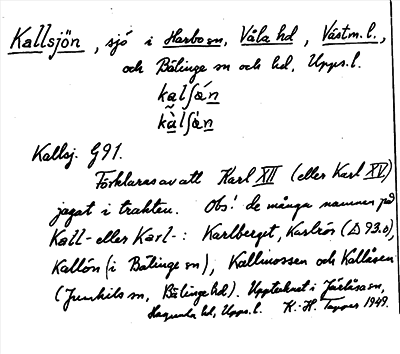 Kallsjön, sjö i Harbo sn, Våla hd, Västm. l.,
och Bälinge sn och hd, Upps. l.
kalʃán
kàlʃàn
Kallsj. G91.
Förklaras av att Karl XII (eller Karl XV)
jagat i trakten. Obs! de många namnen på
Kall- eller Karl-: Karlberget, Karlrör (Δ 93.0),
Kallön (i Bälinge sn), Kallmossen och Kallåsen
(Jumkils sn, Bälinge hd). Upptecknat i Järlåsa sn,
Hagunda hd, Upps. l. K.-H. 1949.